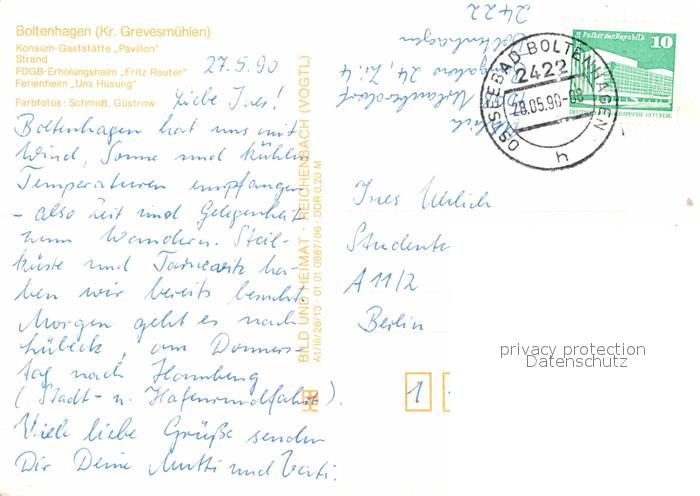 Boltenhagen (Kr. Grevesmühlen)
Konsum-Gaststätte „Pavillon"
Strand
FDGB-Erholungsheim „Fritz Reuter"
Ferienheim „Uns Hüsung"
Farbfotos: Schmidt, Güstrow
27.5.90
Liebe Ines!
Boltenhagen hat uns mit
Wind, Sonne und kühlen
Temperaturen empfangen
- also Zeit und Gelegenheit
zum Wandern. Steil-
küste und Tarnewitz ha-
ben wir bereits besucht.
Morgen geht es nach
Lübeck, am Donners-
tag nach Hamburg
(Stadt- u. Hafenrundfahrt).
Viele liebe Grüße senden
Dir Deine Mutti und Vati.
BILD UND HEIMAT · REICHENBACH (VOGTL)
A1/III/26/13 · 01 01 0867/06 · DDR 0,20 M
Urlauberdorf
24, Zi. 4
Boltenhagen
2422
OSTSEEBAD BOLTENHAGEN
2422
28.05.90-08
h
Palast der Republik
10
Ines Uhlich
Studente
A 11/2
Berlin
1
privacy protection
Datenschutz